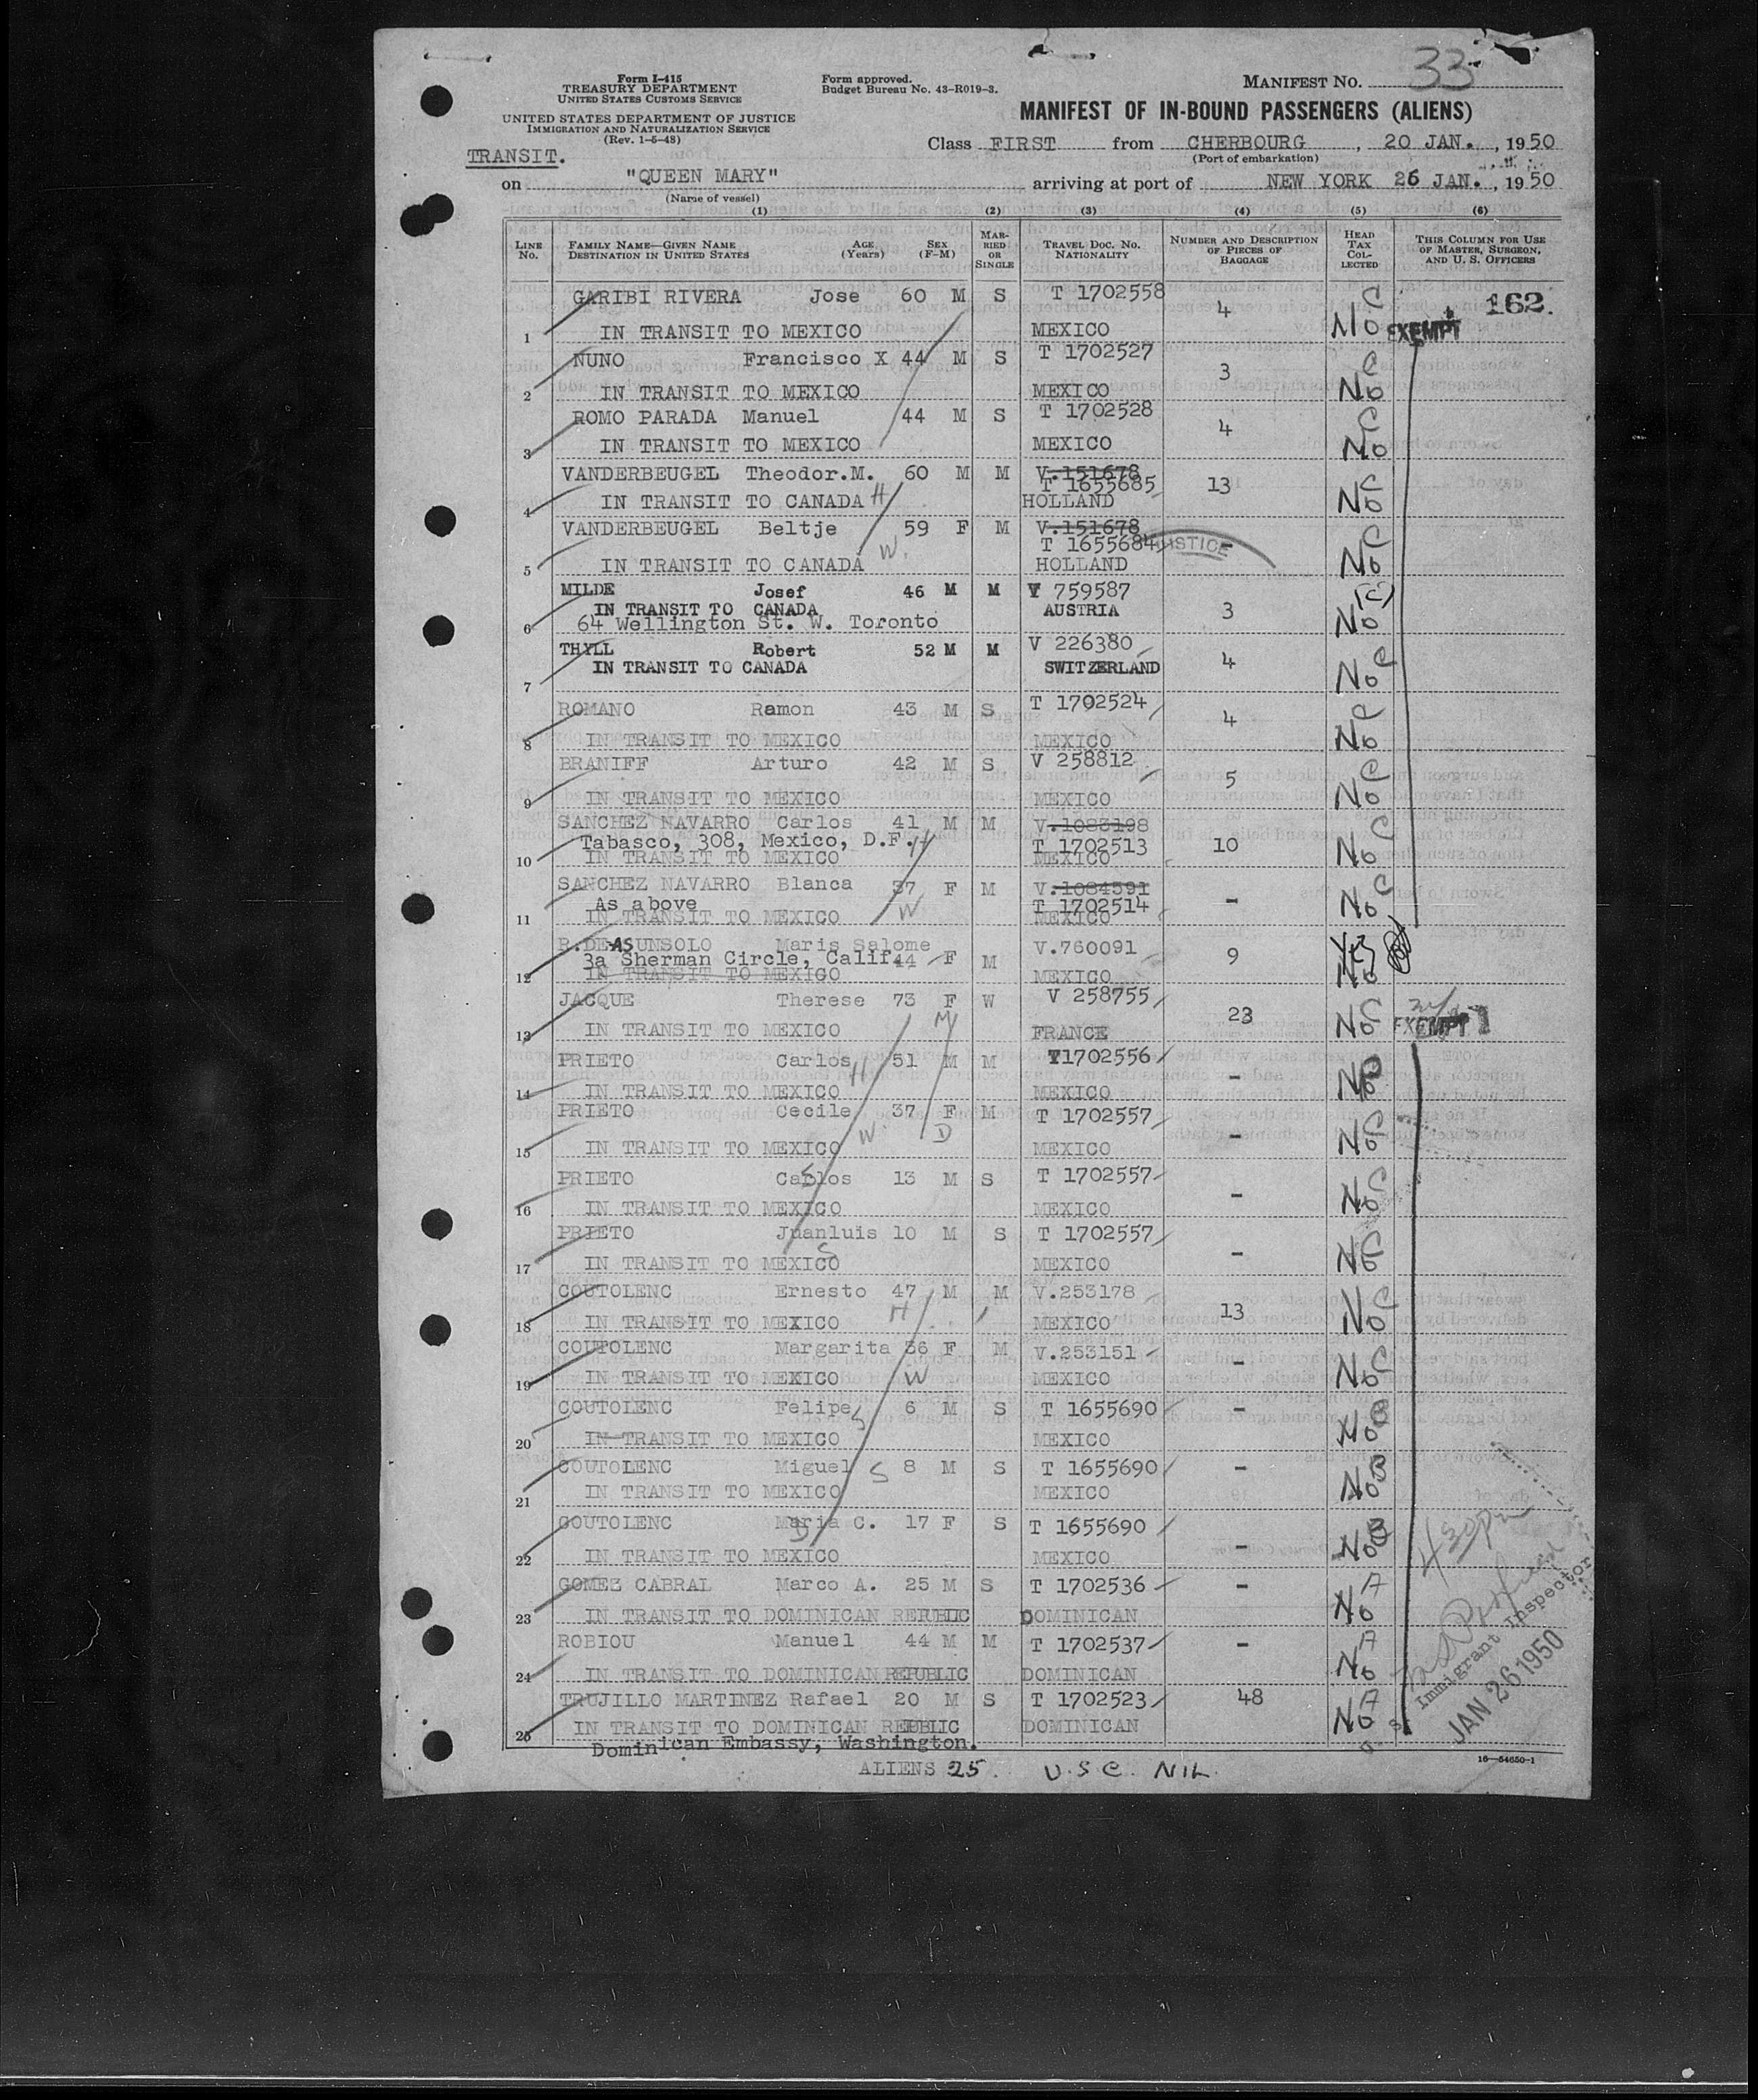 Form I-415
TREASURY DEPARTMENT
UNITED STATES CUSTOMS SERVICE
UNITED STATES DEPARTMENT OF JUSTICE
IMMIGRATION AND NATURALIZATION SERVICE
(Rev. 1-5-48)
Form approved.
Budget Bureau No. 43-R019-3.
MANIFEST NO. 33
MANIFEST OF IN-BOUND PASSENGERS (ALIENS)
Class FIRST from CHERBOURG, 20 JAN., 1950
(Port of embarkation)
TRANSIT.
on "QUEEN MARY" arriving at port of NEW YORK 26 JAN., 1950
(Name of vessel)
(1) (2) (3) (4) (5) (6)
LINE NO. FAMILY NAME—GIVEN NAME DESTINATION IN UNITED STATES AGE (Years) SEX (F-M) MARRIED OR SINGLE TRAVEL DOC. NO. NATIONALITY NUMBER AND DESCRIPTION OF PIECES OF BAGGAGE HEAD TAX COLLECTED THIS COLUMN FOR USE OF MASTER, SURGEON, AND U. S. OFFICERS
GARIBI RIVERA Jose 60 M S T 1702558 4 C 162.
1 IN TRANSIT TO MEXICO MEXICO No EXEMPT
NUNO Francisco X 44 M S T 1702527 3 C
2 IN TRANSIT TO MEXICO MEXICO No
ROMO PARADA Manuel 44 M S T 1702528 4 C
3 IN TRANSIT TO MEXICO MEXICO No
VANDERBEUGEL Theodor.M. 60 M M V.151678
T 1655685 13 C
4 IN TRANSIT TO CANADA H HOLLAND No
VANDERBEUGEL Beltje 59 F M V.151678
T 1655684 JUSTICE - C
W.
5 IN TRANSIT TO CANADA HOLLAND No
MILDE Josef 46 M M V 759587 (C)
IN TRANSIT TO CANADA AUSTRIA 3
6 64 Wellington St. W. Toronto No
THYLL Robert 52 M M V 226380 4 C
IN TRANSIT TO CANADA SWITZERLAND
7 No
ROMANO Ramon 43 M S T 1702524 4 C
8 IN TRANSIT TO MEXICO MEXICO No
BRANIFF Arturo 42 M S V 258812 5 C
9 IN TRANSIT TO MEXICO MEXICO No
SANCHEZ NAVARRO Carlos 41 M M V.1083198 C
Tabasco, 308, Mexico, D.F. H T 1702513 10
10 IN TRANSIT TO MEXICO MEXICO No
SANCHEZ NAVARRO Blanca 37 F M V.1084591 C
As above W T 1702514 -
11 IN TRANSIT TO MEXICO MEXICO No
R.DE-ASUNSOLO Maris Salome V.760091 Yes
3a Sherman Circle, Calif. 44 F M 9
12 IN TRANSIT TO MEXICO MEXICO No
JACQUE Therese 73 F W V 258755 23 C
M
13 IN TRANSIT TO MEXICO FRANCE No EXEMPT
PRIETO Carlos 51 M M T1702556 -
H
14 IN TRANSIT TO MEXICO MEXICO No
PRIETO Cecile 37 F M T 1702557 - C
W. D
15 IN TRANSIT TO MEXICO MEXICO No
PRIETO Carlos 13 M S T 1702557 - C
S
16 IN TRANSIT TO MEXICO MEXICO No
PRIETO Juanluis 10 M S T 1702557 - C
S
17 IN TRANSIT TO MEXICO MEXICO No
COUTOLENC Ernesto 47 M M V.253178 13 C
H
18 IN TRANSIT TO MEXICO MEXICO No
COUTOLENC Margarita 36 F M V.253151 - C
W
19 IN TRANSIT TO MEXICO MEXICO No
COUTOLENC Felipe 6 M S T 1655690 - B
S
20 IN TRANSIT TO MEXICO MEXICO No
COUTOLENC Miguel S 8 M S T 1655690 - B
21 IN TRANSIT TO MEXICO MEXICO No
COUTOLENC Maria C. 17 F S T 1655690 - B
D
22 IN TRANSIT TO MEXICO MEXICO No
430 pm
GOMEZ CABRAL Marco A. 25 M S T 1702536 - A
23 IN TRANSIT TO DOMINICAN REPUBLIC DOMINICAN No
ROBIOU Manuel 44 M M T 1702537 - A
24 IN TRANSIT TO DOMINICAN REPUBLIC DOMINICAN No
Immigrant Inspector
JAN 26 1950
TRUJILLO MARTINEZ Rafael 20 M S T 1702523 48 A
25 IN TRANSIT TO DOMINICAN REPUBLIC DOMINICAN No
Dominican Embassy, Washington.
ALIENS 25. U.S.C. NIL.
16—54650-1